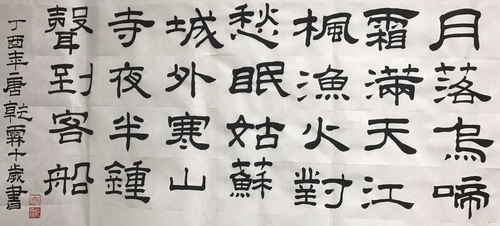 月落烏啼
霜滿天江
楓漁火對
愁眠姑蘇
城外寒山
寺夜半鍾
聲到客船
丁酉年唐乾霖十歲書